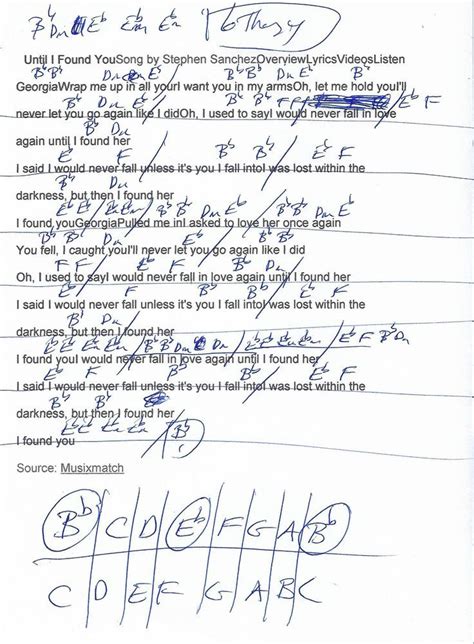 B♭ Dm E♭ E♭m E♭m
Until I Found YouSong by Stephen SanchezOverviewLyricsVideosListen
B♭ B♭ Dm Dm E♭ B♭ B♭ Dm E♭
GeorgiaWrap me up in all yourI want you in my armsOh, let me hold youI'll
B♭ Dm E♭ B♭ B♭ F F E♭ F
never let you go again like I didOh, I used to sayI would never fall in love
B♭ Dm
again until I found her
E♭ F B♭ B♭ E♭ F
I said I would never fall unless it's you I fall intoI was lost within the
B♭ Dm
darkness, but then I found her
E♭ E♭ E♭m E♭m B♭ B♭ Dm E♭
I found youGeorgiaPulled me inI asked to love her once again
B♭ B♭ Dm E♭
You fell, I caught youI'll never let you go again like I did
F F E♭ F B♭ Dm
Oh, I used to sayI would never fall in love again until I found her
E♭ F B♭ B♭ E♭ F
I said I would never fall unless it's you I fall intoI was lost within the
B♭ Dm
darkness, but then I found her
E♭ E♭ E♭m E♭m B♭ B♭ Dm Dm E♭ E♭ E♭m E♭m E♭ F B♭ Dm
I found youI would never fall in love again until I found her
E♭ F B♭ B♭ E♭ F
I said I would never fall unless it's you I fall intoI was lost within the
B♭ B♭
darkness, but then I found her
E♭ E♭ E♭m E♭m B♭
I found you
Source: Musixmatch
B♭ C D E♭ F G A B♭
C D E F G A B C